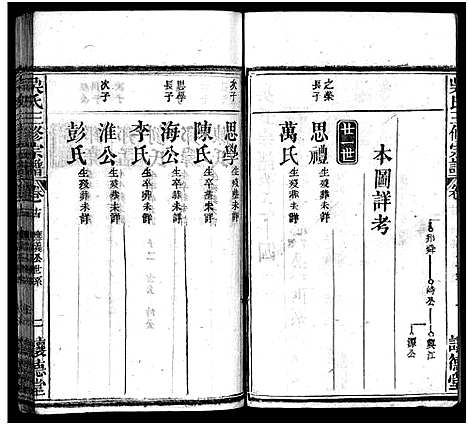 吳氏三修宗譜
卷
讓德堂
本圖詳考
廿一世
之榮
長子
思禮
生歿葬未詳
萬氏
生歿葬未詳
次子
思學
生歿葬未詳
陳氏
生歿葬未詳
思學
長子
海公
生卒葬未詳
李氏
生卒葬未詳
次子
淮公
生歿葬未詳
彭氏
生歿葬未詳
吳氏三修宗譜
卷
世系
讓德堂